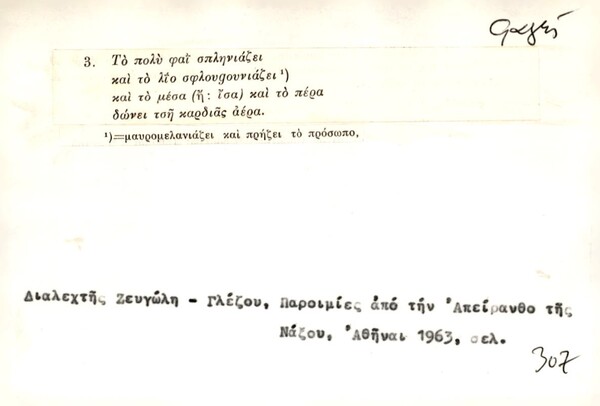 φαγεῖ
3. Τὸ πολὺ φαῒ σπληνιάζει
καὶ τὸ λΐο σφλουgουνιάζει ¹)
καὶ τὸ μέσα (ἤ: ἴσα) καὶ τὸ πέρα
δώνει τσῆ καρδιᾶς ἀέρα.
¹)=μαυρομελανιάζει καὶ πρήζει τὸ πρόσωπο.
Διαλεχτῆς Ζευγώλη - Γλέζου, Παροιμίες ἀπό τήν Ἀπείρανθο τῆς
Νάξου, Ἀθῆναι 1963, σελ.
307